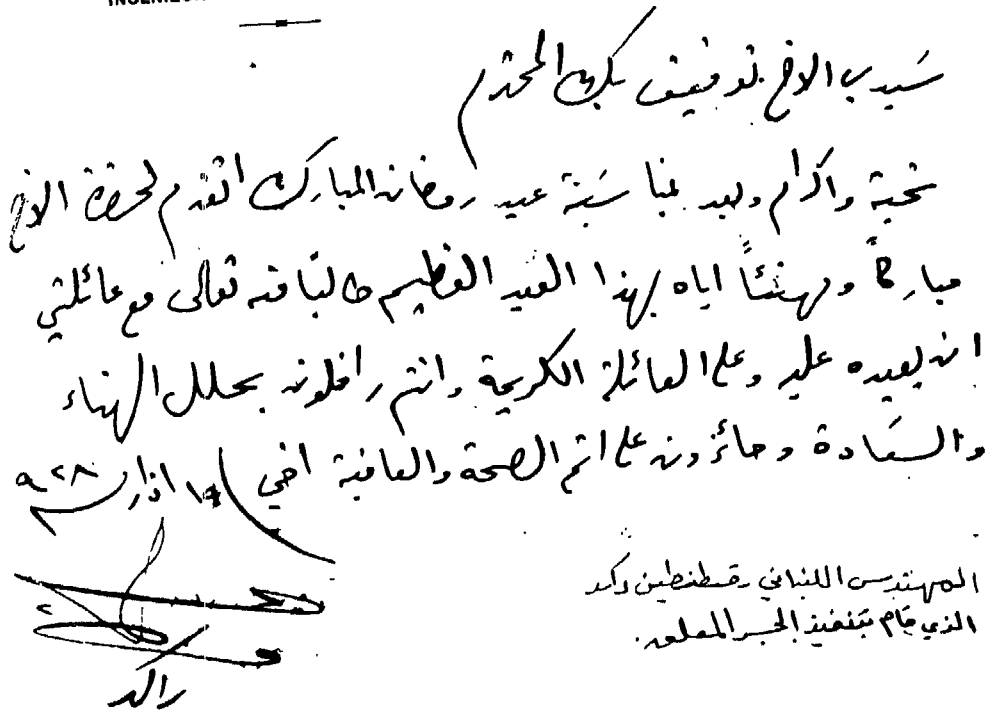 سيدي الاخ توفيق بك المحترم
تحية واكرام وبعد بمناسبة عيد رمضان المبارك اتقدم لحضرة الاخ
مباركاً ومهنئاً اياه بهذا العيد العظيم طالباً منه تعالى مع عائلتي
ان يعيده عليه وعلى العائلة الكريمة وانتم رافلون بحلل الهناء
والسعادة وحائزون على اتم الصحة والعافية اخي
اذار ٩٢٨
المهندس اللبناني قسطنطين راكد
الذي قام بتنفيذ الجسر المعلق